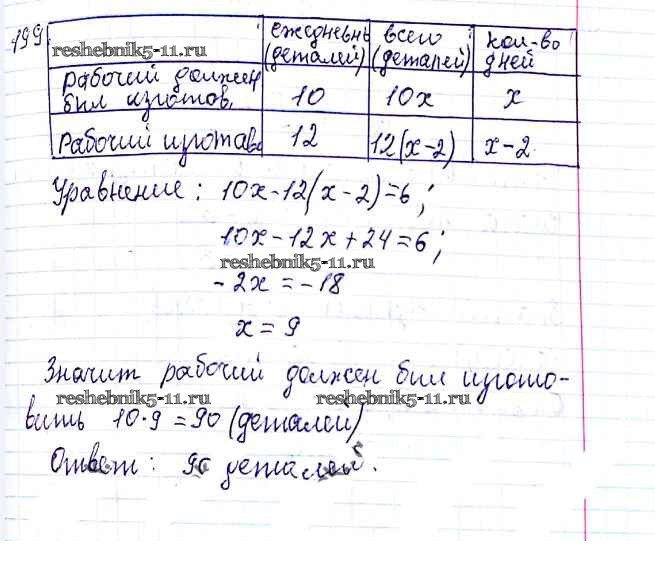 199
ежедневн (деталей) | всего (деталей) | кол-во дней
reshebnik5-11.ru
рабочий должен был изготов. | 10 | 10x | x
Рабочий изготав | 12 | 12(x-2) | x-2
Уравнение: 10x-12(x-2)=6;
10x-12x+24=6;
reshebnik5-11.ru
-2x=-18
x=9
Значит рабочий должен был изгото-
reshebnik5-11.ru reshebnik5-11.ru
вить 10·9=90 (деталей)
Ответ: 90 деталей.